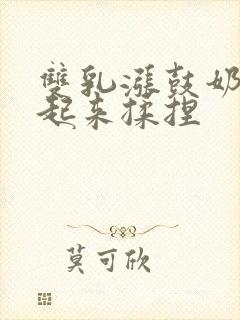 雙乳漲鼓奶
起来揉捏
莫可欣